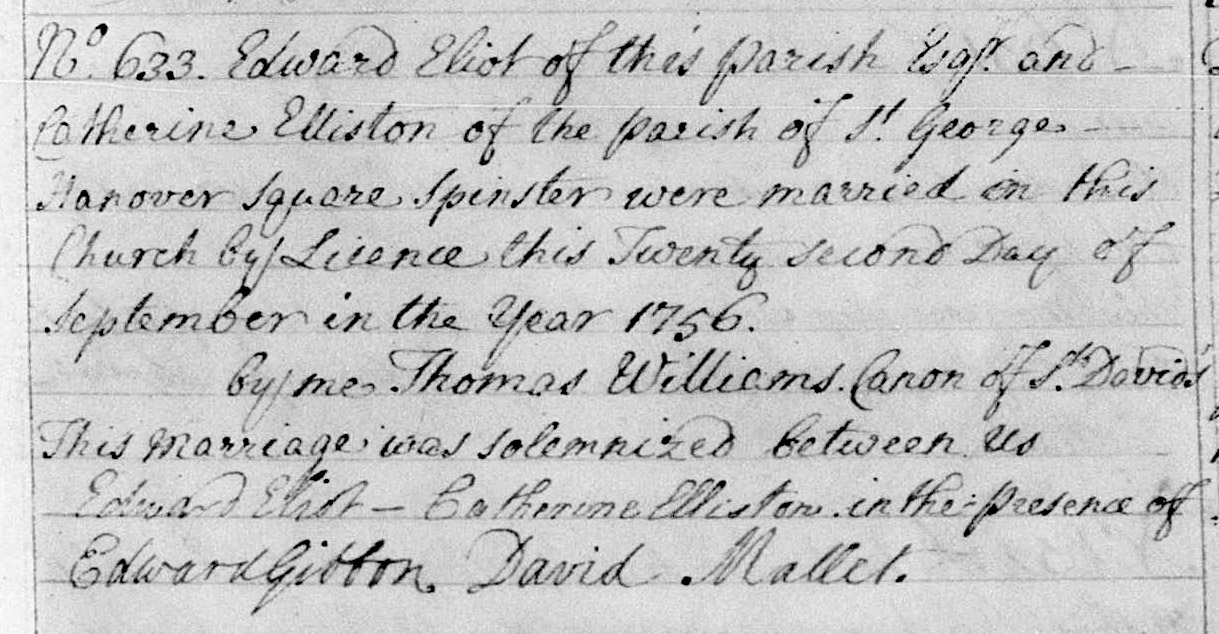 No. 633. Edward Eliot of this parish Esqr. and
Catherine Elliston of the parish of St George
Hanover Square Spinster were married in this
Church by Licence this Twenty second Day of
September in the Year 1756.
by me Thomas Williams. Canon of St. Davids
This Marriage was solemnized between Us
Edward Eliot - Catherine Elliston in the presence off
Edward Gibbon. David Mallet.